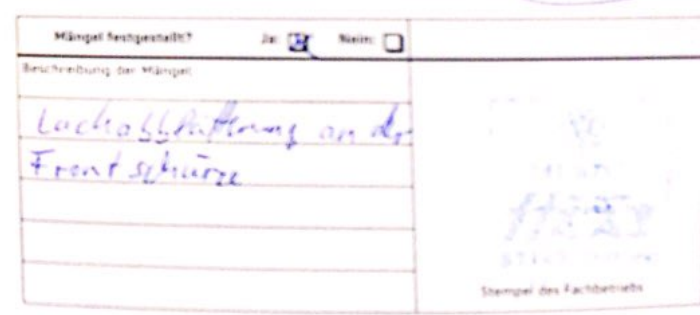 Mängel festgestellt? Ja: Nein:
Beschreibung der Mängel
Lackabblätterung an der
Frontschürze
Stempel des Fachbetriebs